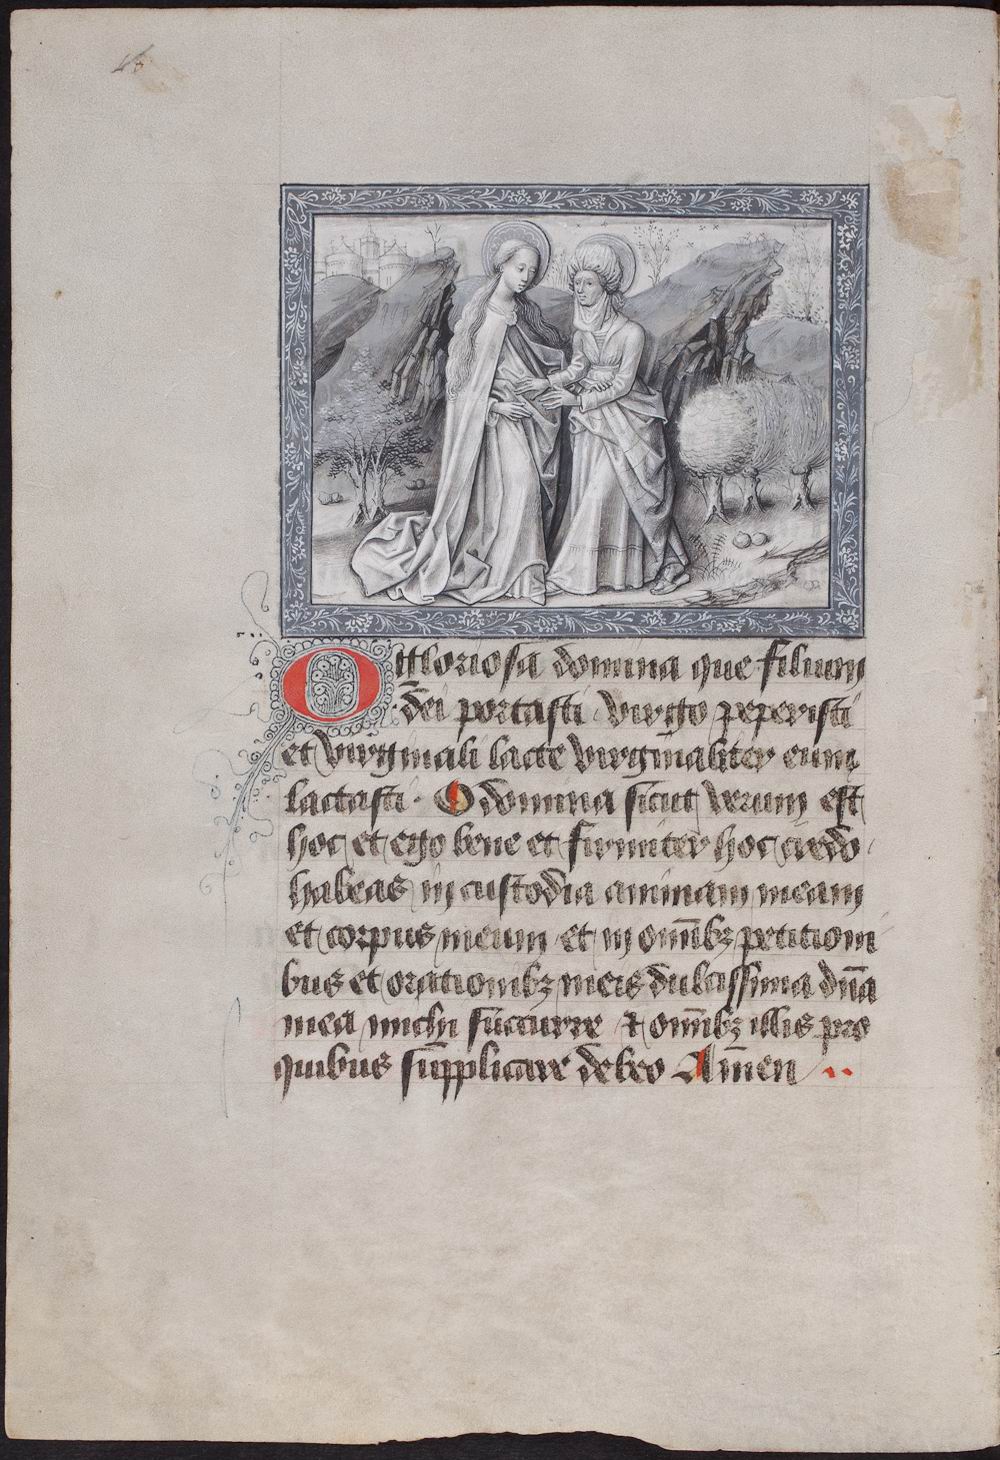 O gloriosa domina que filium
dei portasti virgo peperisti
et virginali lacte virginaliter eum
lactasti . O domina sicut verum est
hoc et ego bene et firmiter hoc credo
habeas in custodia animam meam
et corpus meum et in om̄ibꝫ petitioni
bus et orationibꝫ meis dulcissima dn̄a
mea michi succurre ⁊ om̄ibꝫ illis pro
quibus supplicare debeo Am̄en